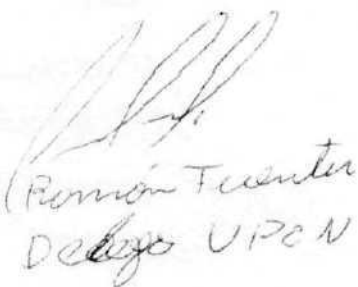 Román Fuentes
Delego UPCN